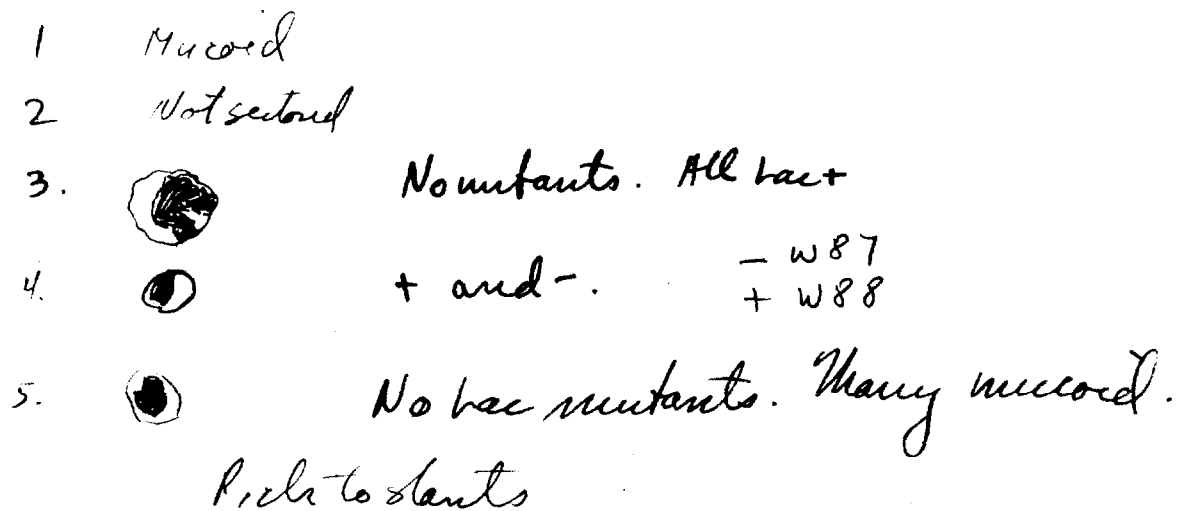 1 Mucoid
2 Not sectored
3. No mutants. All Lac+
4. + and -. - W87
+ W88
5. No Lac mutants. Many mucoid.
Pick to slants